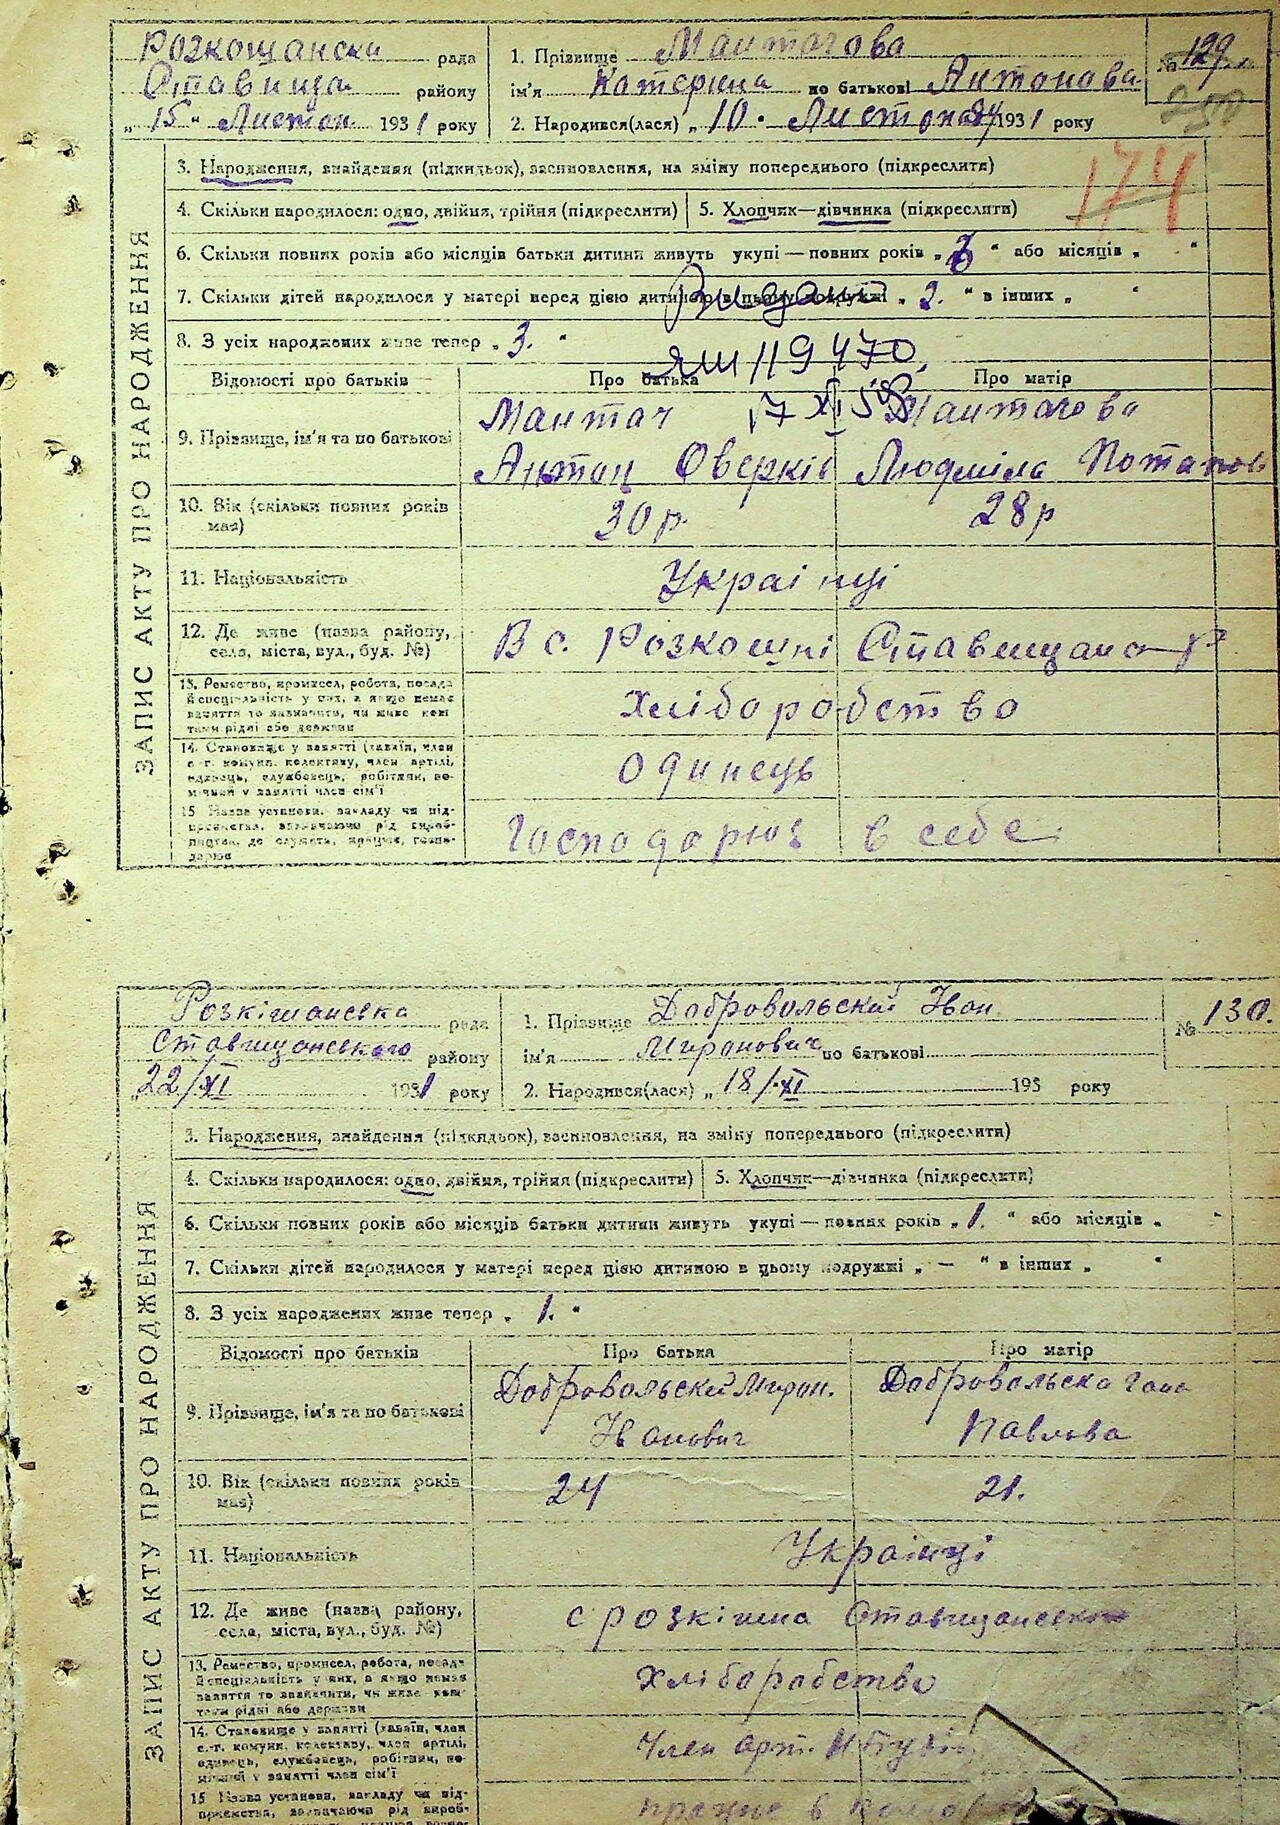 Розкощанськ рада
Ставища району
„15“ Листоп. 1931 року
1. Прізвище Мантачова
ім'я Катерина по батькові Антонова
2. Народився(лася) „10. Листопаду 1931 року
№ 129
250
174
ЗАПИС АКТУ ПРО НАРОДЖЕННЯ
3. Народження, знайдення (підкидьок), засиновлення, на зміну попереднього (підкреслити)
4. Скільки народилося: одно, двійня, трійня (підкреслити) 5. Хлопчик—дівчинка (підкреслити)
6. Скільки повних років або місяців батьки дитини живуть укупі — повних років „ “ або місяців „ “
7. Скільки дітей народилося у матері перед цією дитиною в цьому подружжі „ 2. “ в інших „ “
8. З усіх народжених живе тепер „ 3. “
ЯШ 119470
17 XI 58
Відомості про батьків Про батька Про матір
9. Прізвище, ім'я та по батькові
Мантач Мантачова
Антон Оверків Людміла Потапов
10. Вік (скільки повних років має) 30 р. 28 р
11. Національність Українці
12. Де живе (назва району, села, міста, вул., буд. №) В с. Розкошні Ставищано р
13. Ремество, промисел, робота, посада й спеціальність у них, а якщо немає заняття то зазначити, чи живе коштами рідні або держави
Хліборобство
14. Становище у занятті (хазяїн, член с.-г. комуни, колективу, член артілі, одинець, службовець, робітник, помічний у занятті член сім'ї
Одинець
15 Назва установи, закладу чи підприємства, зазначаючи рід виробництва, де служить, працює, господарює
Господарює в себе
Розкішанська рада
Ставищанського району
„22/XI 1931 року
1. Прізвище Добровольский Іван
ім'я Миронович по батькові
2. Народився(лася) „18/XI 193 року
№ 130.
ЗАПИС АКТУ ПРО НАРОДЖЕННЯ
3. Народження, знайдення (підкидьок), засиновлення, на зміну попереднього (підкреслити)
4. Скільки народилося: одно, двійня, трійня (підкреслити) 5. Хлопчик—дівчинка (підкреслити)
6. Скільки повних років або місяців батьки дитини живуть укупі — повних років „ 1. “ або місяців „ “
7. Скільки дітей народилося у матері перед цією дитиною в цьому подружжі „ — “ в інших „ “
8. З усіх народжених живе тепер „ 1. “
Відомості про батьків Про батька Про матір
9. Прізвище, ім'я та по батькові
Добровольский Мирон. Добровольска Гана
Іванович Павлова
10. Вік (скільки повних років має) 24 21.
11. Національність Українці
12. Де живе (назва району, села, міста, вул., буд. №) с Розкішна Ставищанськ
13. Ремество, промисел, робота, посада й спеціальність у них, а якщо немає заняття то зазначити, чи живе коштами рідні або держави
Хліборобство
14. Становище у занятті (хазяїн, член с.-г. комуни, колективу, член артілі, одинець, службовець, робітник, помічний у занятті член сім'ї
Член арт.
15 Назва установи, закладу чи підприємства, зазначаючи рід виробництва
працює в